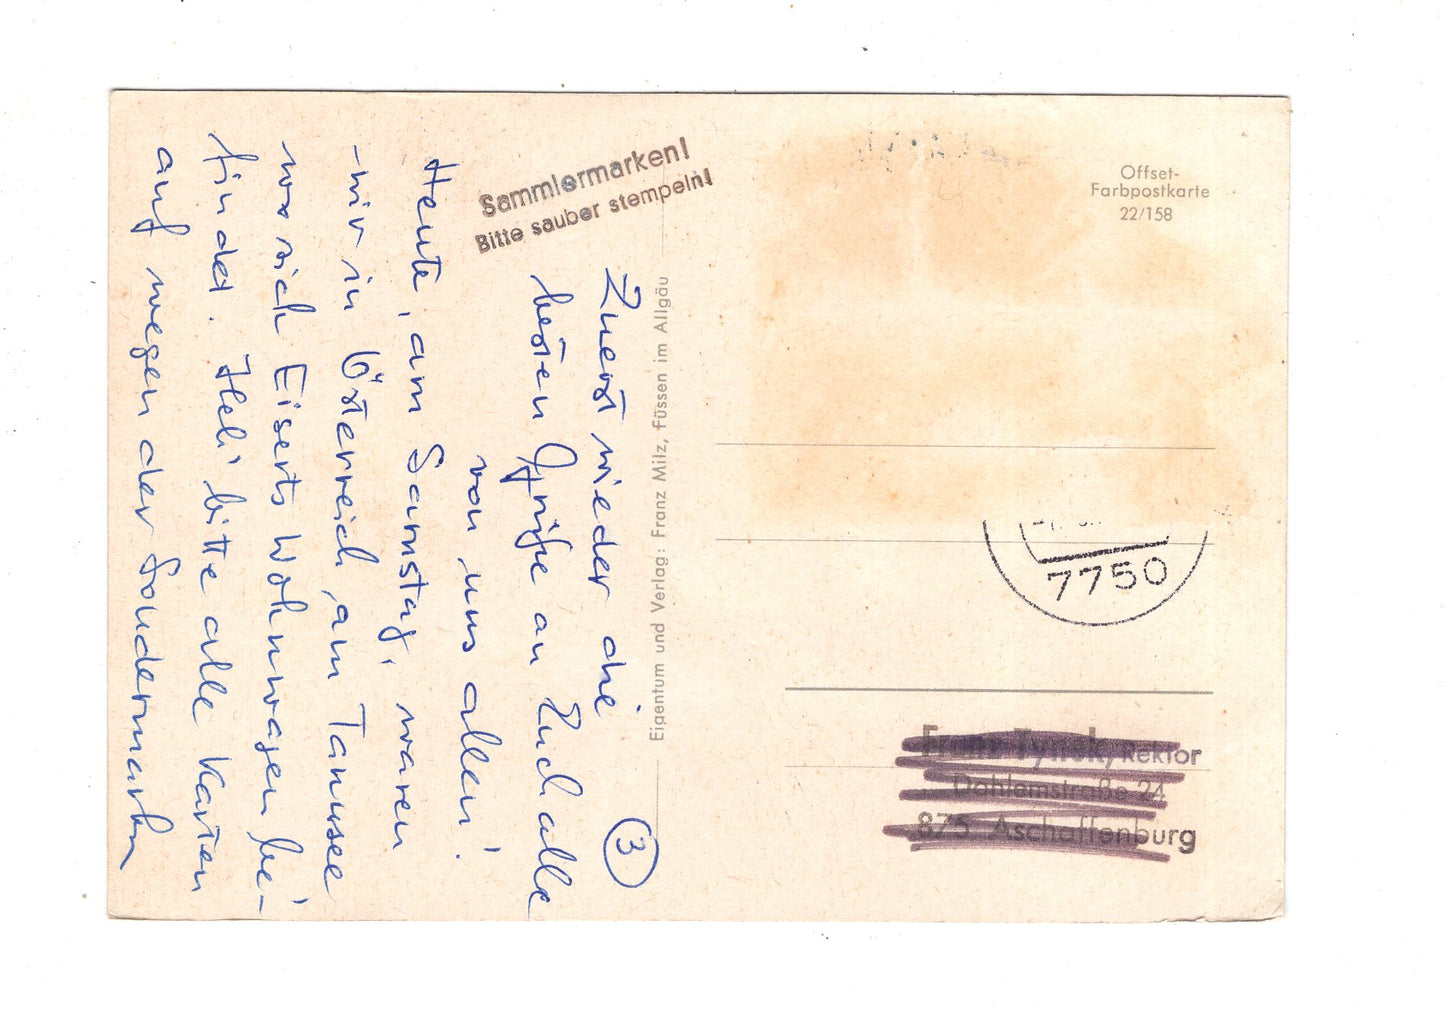 Sammlermarken!
Bitte sauber stempeln!
Offset-
Farbpostkarte
22/158
3
Zuerst wieder die
besten Grüße an Euch alle
von uns allen!
Heute, am Samstag, waren
wir in Österreich am Tannsee
wo sich Eiserts Wohnwagen be-
findet. Heli bitte alle Karten
auf wegen der Sondermarken
Eigentum und Verlag: Franz Milz, Füssen im Allgäu
7750
Franz Tyrrek, Rektor
Dahlemstraße 24
875 Aschaffenburg